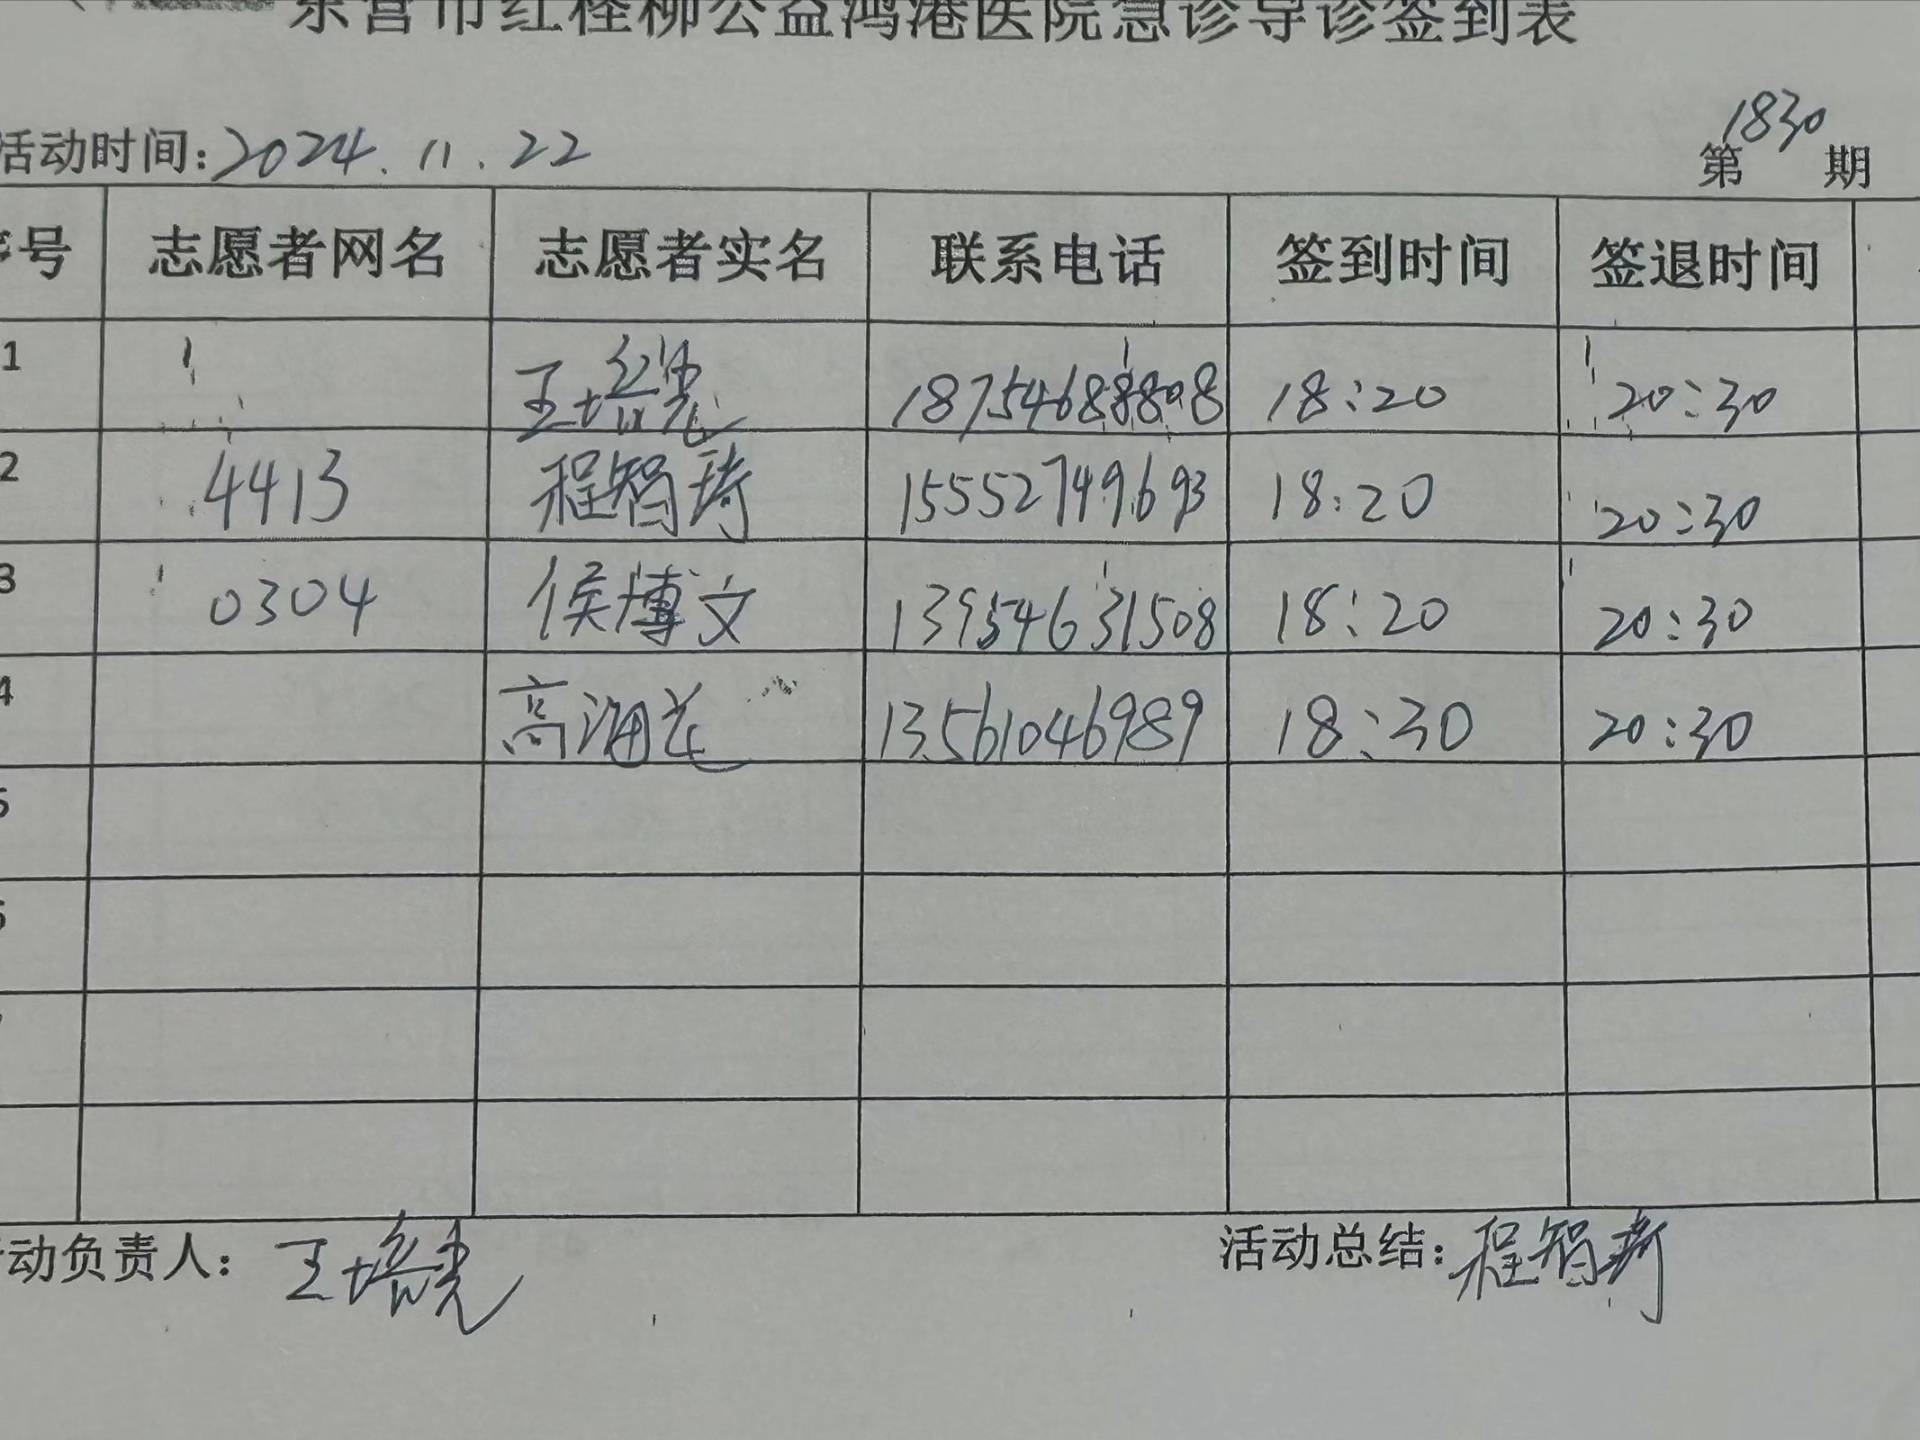 东营市红柽柳公益鸿港医院急诊导诊签到表
活动时间:2024.11.22
第1830期
序号 志愿者网名 志愿者实名 联系电话 签到时间 签退时间
1 王培亮 18:20 20:30
2 4413 程智琦 15552749693 18:20 20:30
3 0304 侯博文 13954631508 18:20 20:30
4 高海花 13561046989 18:30 20:30
5
6
活动负责人: 王培亮
活动总结: 程智琦